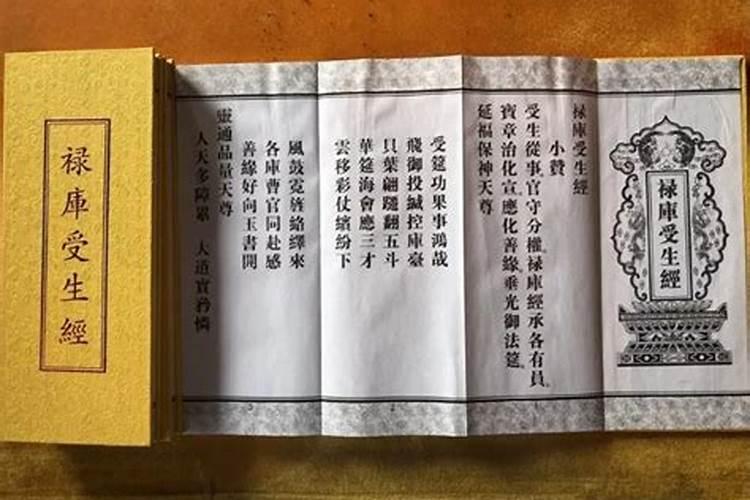 祿庫受生經
祿庫受生經
祿庫受生經
小贊
受生從事官守分權。祿庫經承各有員。
寶章治化宣應化善緣。垂光御法筵。
延福保神天尊
受筵功果事鴻哉
飛御投緘控庫臺
貝葉翩躚翻五斗
華筵海會應三才
雲移彩仗繽紛下
風鼓霓旌絡繹來
各庫曹官同赴感
善緣好向玉書開
靈通品量天尊
人天多障累 大道實矜憐